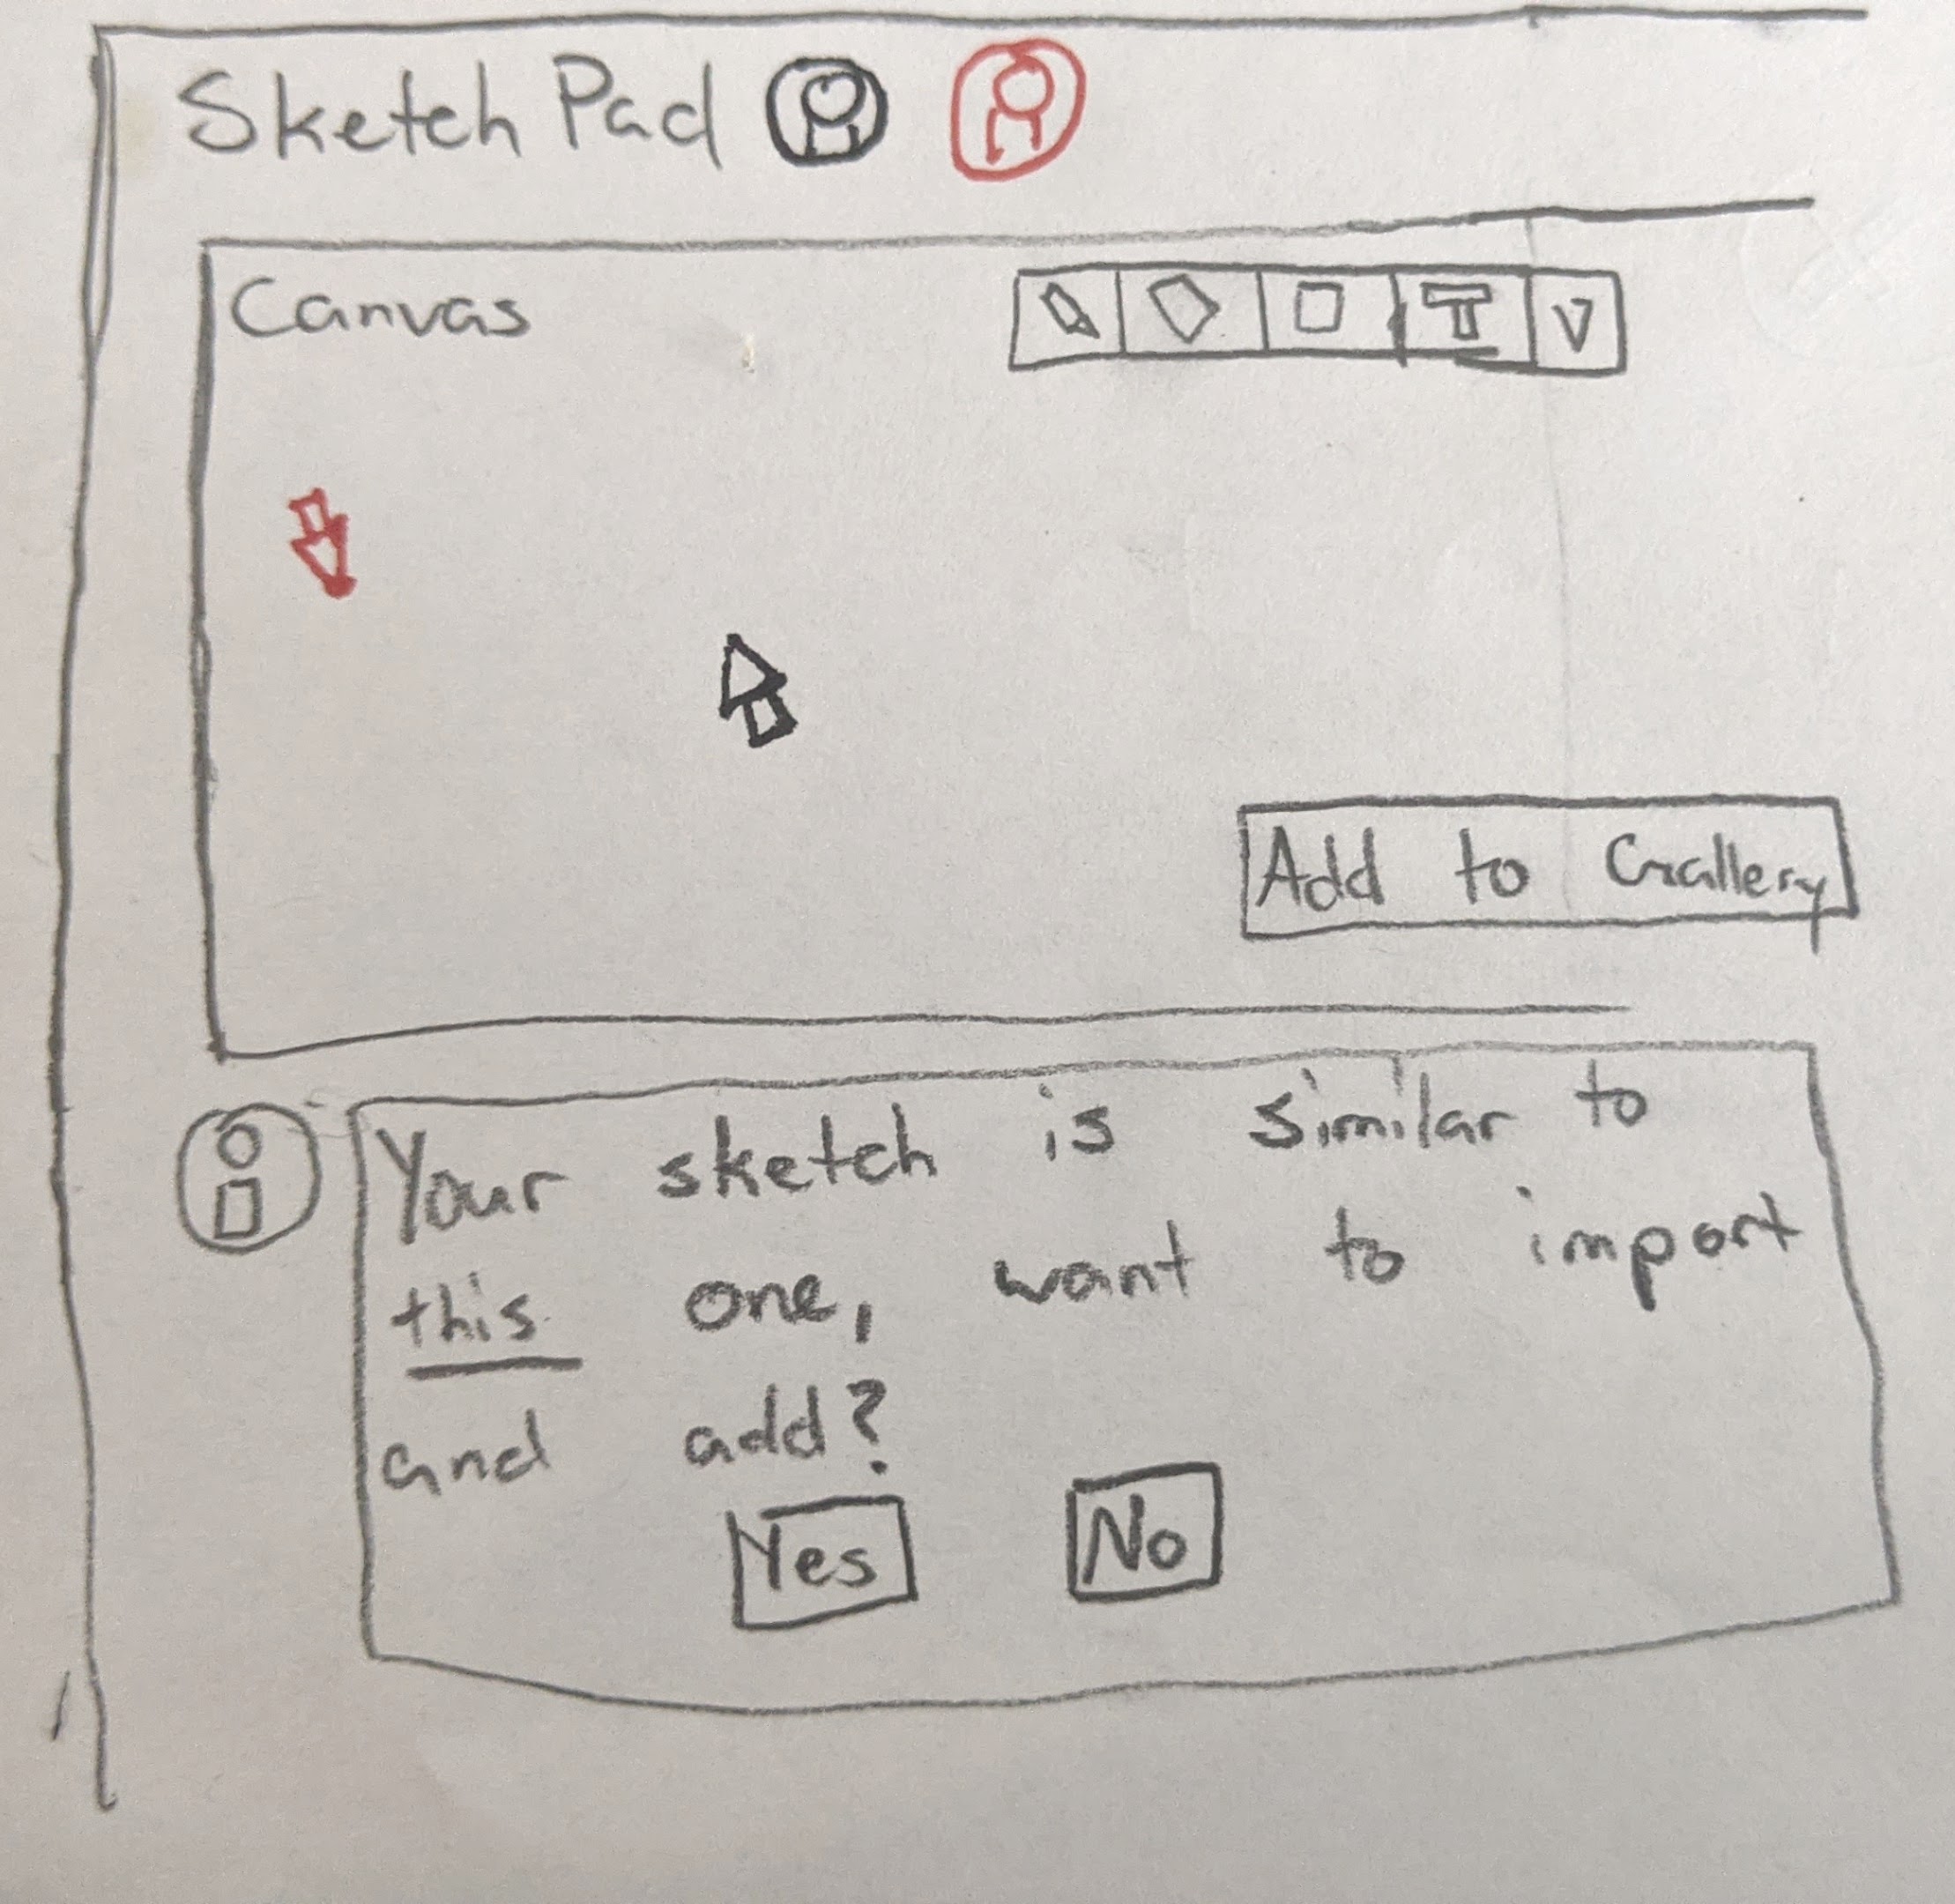 Sketch Pad
Canvas
T
Add to Gallery
Your sketch is similar to
this one, want to import
and add?
Yes No